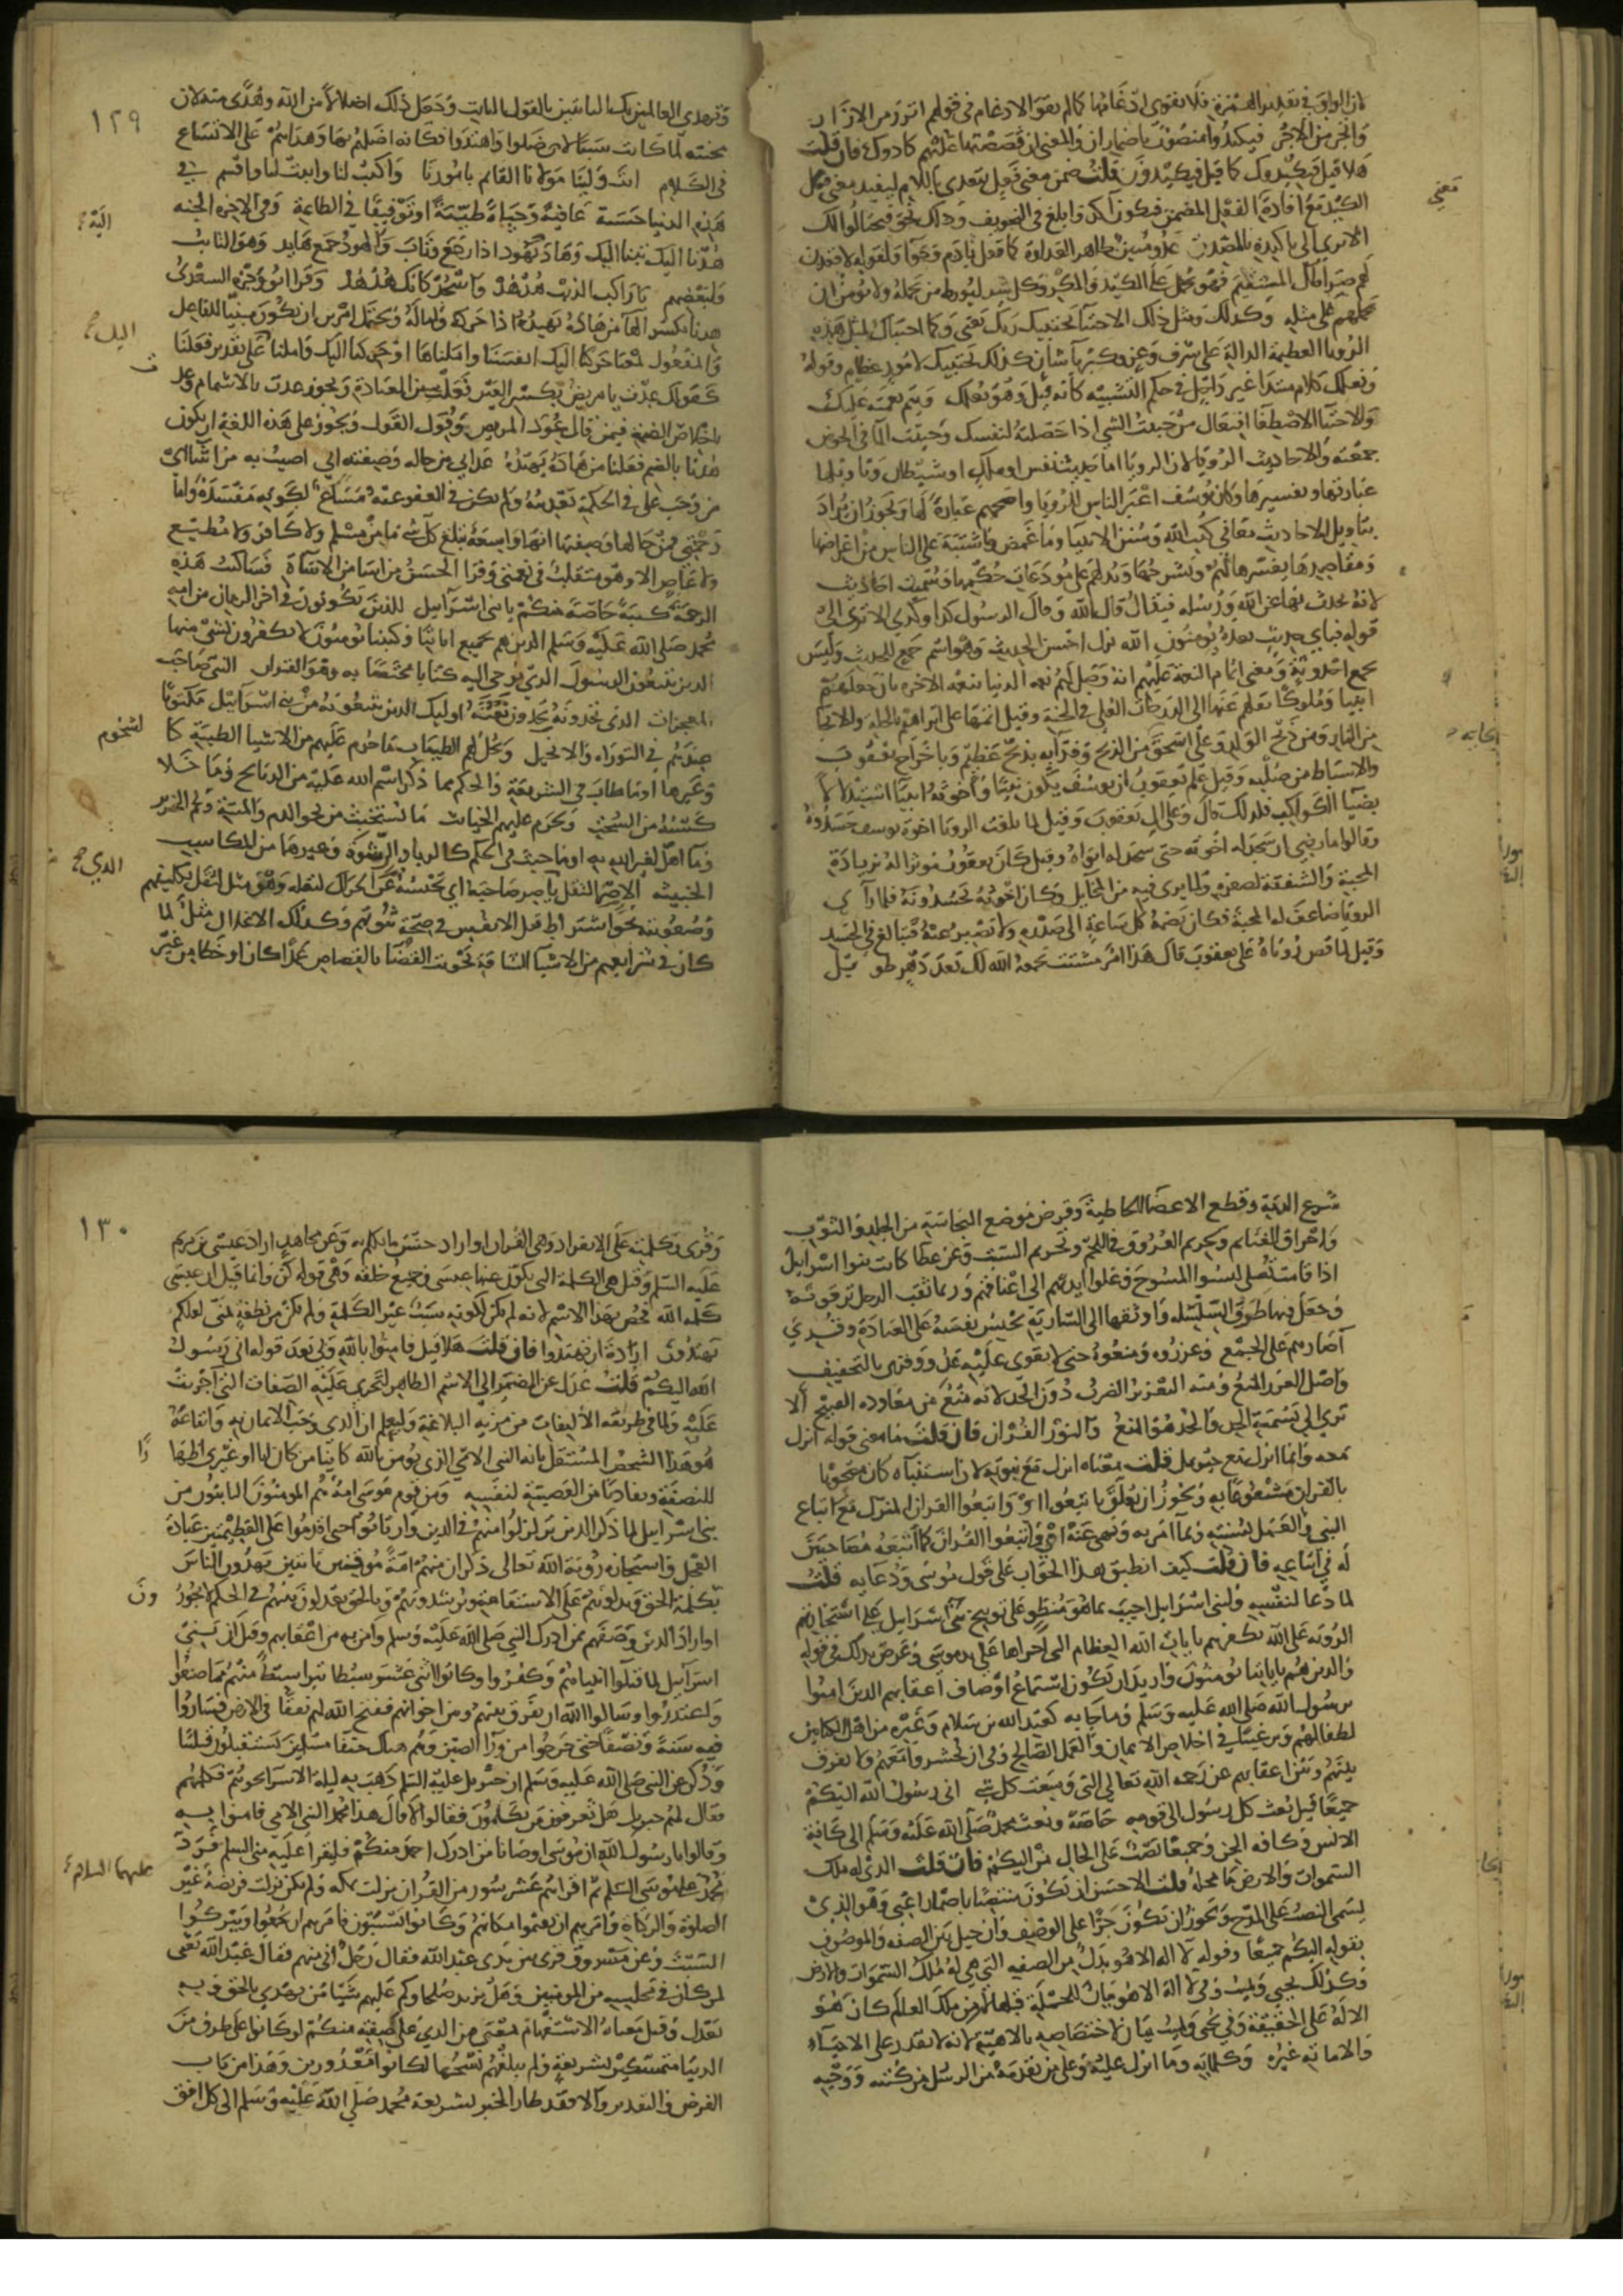 لان الواو في تقدير الهمزة فلا يقوى ادغامها كما لم يقو الادغام في قولهم اتزر من الازار
واتجر من الاجر فيكيدوا منصوب باضمار ان والمعنى ان قصصتها عليهم كادوك فان قلت
هلا قيل فيكيدوك كما قيل فكيدون قلت ضمن معنى فعل يتعدى باللام ليفيد معنى فعل
الكيد مع افادة الفعل المضمن فيكون آكد وابلغ في التخويف وذلك نحو فيحتالوا لك
الا ترى الى تاكيده بالمصدر عدو مبين ظاهر العداوة لما فعل بادم وحوا ولقوله لاقعدن
لهم صراطك المستقيم فهو يحمل على الكيد والمكر وكل شر ليورط من يحمله ولا يؤمن ان
يحملهم على مثله وكذلك ومثل ذلك الاجتبا يجتبيك ربك يعني وكما اجتباك لمثل هذه
الرويا العظيمة الدالة على شرف وعز وكبريا شان كذلك يجتبيك لامور عظام وقوله
ويعلمك كلام مبتدا غير داخل في حكم التشبيه كانه قيل وهو يعلمك ويتم نعمته عليك
والاجتبا الاصطفا افتعال من جبيت الشي اذا حصلته لنفسك وجبيت الما في الحوض
جمعته والاحاديث الرويا لان الرويا اما حديث نفس او ملك او شيطان وتاويلها
عبارتها وتفسيرها وكان يوسف اعبر الناس للرويا واصحهم عبارة لها ويجوز ان يراد
بتاويل الاحاديث معاني كتب الله وسنن الانبيا وما غمض واشتبه على الناس من اغراضها
ومقاصدها يفسرها لهم ويشرحها ويدلهم على مودعات حكمها وسميت احاديث
لانه يحدث بها عن الله ورسله فيقال قال الله وقال الرسول كذا وكذا الا ترى الى
قوله فباي حديث بعده يومنون الله نزل احسن الحديث وهو اسم جمع للحديث وليس
بجمع احدوثة ومعنى اتمام النعمة عليهم انه وصل لهم نعمة الدنيا بنعمة الاخرة بان جعلهم
انبيا وملوكا ونقلهم عنها الى الدرجات العلى في الجنة وقيل اتمها على ابراهيم بالخلة والانجا
من النار ومن ذبح الولد وعلى اسحق من الذبح وفدائه بذبح عظيم وباخراج يعقوب
والاسباط من صلبه وقيل علم يعقوب ان يوسف يكون نبيا واخوته انبيا استدلالا
بضيا الكواكب فلذلك قال وعلى ال يعقوب وقيل لما بلغت الرويا اخوة يوسف حسدوه
وقالوا ما رضي ان سجد له اخوته حتى سجد له ابواه وقيل كان يعقوب موثرا له بزيادة
المحبة والشفقة لصغره ولما يرى فيه من المخايل وكان اخوته يحسدونه فلما راى
الرويا ضاعف له المحبة فكان يضمه كل ساعة الى صدره ولا يصبر عنه فتبالغ في الحسد
وقيل لما قص روياه على يعقوب قال هذا امر مشتت يجمعه الله لك بعد دهر طويل
معنى
١٢٩
وتهدي العالمين بك الثابتين بالقول الثابت وجعل ذلك اضلالا من الله وهدى منه لان
محنته لما كانت سببا لان ضلوا واهتدوا فكانه اضلهم بها وهداهم على الاتساع
في الكلام انت ولينا مولانا القائم بامورنا واكتب لنا واثبت لنا واقسم في
هذه الدنيا حسنة عافية وحياة طيبة او توفيقا في الطاعة وفي الاخرة الجنة
هدنا اليك تبنا اليك وهاد يهود اذا رجع وتاب والهود جمع هايد وهو التائب
ولبعضهم يا راكب الذنب هدهد واسجد كانك هدهد وقرا ابو وجزة السعدي
هدنا بكسر الها من هاده يهيده اذا حركه واماله ويحتمل امرين ان يكون مبنيا للفاعل
والمفعول بمعنى حركنا اليك انفسنا واملناها او حركنا اليك واملنا على تقدير فعلنا
كقولك عدت يا مريض بكسر العين فعلت من العيادة ويجوز عدت بالاشمام وعد
باخلاص الضمة فيمن قال عود المريض وقول القول ويجوز على هذه اللغة ان يكون
هدنا بالضم فعلنا من هاده يهيده عذابي من حاله وصفته اني اصيب به من اشا اي
من وجب علي في الحكمة تعذيبه ولم يكن في العفو عنه مساغ لكونه مفسدة واما
رحمتي فمن حالها وصفتها انها واسعة تبلغ كل شي ما من مسلم ولا كافر ولا مطيع
ولا عاص الا وهو متقلب في نعمتي وقرا الحسن من اسا من الاساة فساكتب هذه
الرحمة كتبة خاصة منكم يا بني اسرايل للذين يكونون في اخر الزمان من امة
محمد صلى الله عليه وسلم الذين هم بجميع اياتنا وكتبنا يومنون لا يكفرون بشي منها
الذين يتبعون الرسول الذي نوحي اليه كتابا مختصا به وهو القران النبي صاحب
المعجزات الذي يجدونه يجدون نعته اوليك الذين يتبعونه من بني اسرائيل مكتوبا
عندهم في التوراة والانجيل ويحل لهم الطيبات ما حرم عليهم من الاشيا الطيبة كا
وغيرها او ما طاب في الشريعة والحكم مما ذكر اسم الله عليه من الذبائح وما خلا
كسبه من السحت ويحرم عليهم الخبائث ما يستخبث من نحو الدم والميتة ولحم الخنزير
وما اهل لغير الله به او ما خبث في الحكم كالربا والرشوة وغيرهما من المكاسب
الخبيثة الاصر الثقل ياصر صاحبه اي يحبسه عن الحراك لثقله وهو مثل لثقل تكليفهم
وصعوبته نحو اشتراط قتل الانفس في صحة توبتهم وكذلك الاغلال مثل لما
كان في شرائعهم من الاشيا الشاقة نحو بت القضا بالقصاص عمدا كان او خطا من غير
الشحوم
الذي
شرع الدية وقطع الاعضا الخاطية وقرض موضع النجاسة من الجلد والثوب
واحراق الغنايم وتحريم العروق في اللحم وتحريم السبت وعن عطا كانت بنوا اسرايل
اذا قامت تصلي لبسوا المسوح وغلوا ايديهم الى اعناقهم وربما ثقب الرجل ترقوته
وجعل فيها طرف السلسلة واوثقها الى السارية يحبس نفسه على العبادة وقري
آصارهم على الجمع وعزروه ومنعوه حتى لا يقوى عليه عدو وقري بالتخفيف
واصل العزر المنع ومنه التعزير الضرب دون الحد لانه منع عن معاودة القبيح الا
ترى الى تسمية الحد والحد هو المنع والنور القران فان قلت ما معنى قوله انزل
معه وانما انزل مع جبريل قلت معناه انزل مع نبوته لان استنباه كان مصحوبا
بالقران مشفوعا به ويجوز ان يعلق باتبعوا اي واتبعوا القران المنزل مع اتباع
النبي والعمل بسنته وبما امر به ونهى عنه اي واتبعوا القران كما اتبعه مصاحبين
له في اتباعه فان قلت كيف انطبق هذا الجواب على قول موسى ودعايه قلت
لما دعا لنفسه ولبني اسرايل اجيب بما هو منطو على توبيخ بني اسرايل على استجازتهم
الروية على الله وكفرهم بايات الله العظام التي اجراها على يد موسى وعرض بذلك في قوله
والذين هم باياتنا يومنون واريد ان يكون استماع اوصاف اعقابهم الذين امنوا
برسول الله صلى الله عليه وسلم وما جا به كعبد الله بن سلام وغيره من اهل الكتابين
لطفا لهم وترغيبا في اخلاص الايمان والعمل الصالح وفي ان يحشروا معهم ولا يفرق
بينهم وبين اعقابهم عن رحمة الله تعالى التي وسعت كل شي اني رسول الله اليكم
جميعا قيل بعث كل رسول الى قومه خاصة وبعث محمد صلى الله عليه وسلم الى كافة
الانس وكافة الجن وجميعا نصب على الحال من اليكم فان قلت الذي له ملك
السموات والارض ما محله قلت الاحسن ان يكون منتصبا باضمار اعني وهو الذي
يسمى النصب على المدح ويجوز ان يكون جرا على الوصف وان حيل بين الصفة والموصوف
بقوله اليكم جميعا وقوله لا اله الا هو بدل من الصلة التي هي له ملك السموات والارض
وكذلك يحيي ويميت وفي لا اله الا هو بيان للجملة قبلها لان من ملك العالم كان هو
الاله على الحقيقة وفي يحيي ويميت بيان لاختصاصه بالالهية لانه لا يقدر على الاحياء
والاماتة غيره وكلماته وما انزل عليه وعلى من تقدمه من الرسل من كتبه ووحيه
١٣٠
وقرى وكلمته على الافراد وهي القران او اراد جنس ما يكلم به وعن مجاهد اراد عيسى بن مريم
عليه السلم وقيل هي الكلمة التي تكون عنها عيسى وجميع خلقه وهي قوله كن وانما قيل ان عيسى
كلمة الله فخص بهذا الاسم لانه لم يكن لكونه سبب غير الكلمة ولم يكن من نطفة تمنى لعلكم
تهتدون ارادة ان تهتدوا فان قلت هلا قيل فامنوا بالله وبي بعد قوله اني رسول
الله اليكم قلت عدل عن المضمر الى الاسم الظاهر لتجرى عليه الصفات التي اجريت
عليه ولما في طريقة الالتفات من مزية البلاغة وليعلم ان الذي وجب الايمان به واتباعه
هو هذا الشخص المستقل بانه النبي الامي الذي يومن بالله كائنا من كان انا او غيري اظها
للنصفة وتفاديا من العصبية لنفسه ومن قوم موسى امة هم المومنون التائبون من
بني اسرايل لما ذكر الذين تزلزلوا منهم في الدين وارتابوا حتى اقدموا على العظيمتين عبادة
العجل واستجازة روية الله تعالى ذكر ان منهم امة موقنين ثابتين يهدون الناس
بكلمة الحق ويدلونهم على الاستقامة ويرشدونهم وبالحق يعدلون بينهم في الحكم لا يجور
او اراد الذين وصفهم ممن ادرك النبي صلى الله عليه وسلم وامن به من اعقابهم وقيل ان بني
اسرايل لما قتلوا انبياهم وكفروا وكانوا اثني عشر سبطا تبرا سبط منهم مما صنعوا
واعتذروا وسالوا الله ان يفرق بينهم وبين اخوانهم ففتح الله لهم نفقا في الارض فساروا
فيه سنة ونصفا حتى خرجوا من ورا الصين وهم هناك حنفا مسلمين يستقبلون قبلتنا
وذكر عن النبي صلى الله عليه وسلم ان جبريل عليه السلم ذهب به ليلة الاسرا نحوهم فكلمهم
فقال لهم جبريل هل تعرفون من تكلمون فقالوا لا قال هذا محمد النبي الامي فامنوا به
وقالوا يا رسول الله ان موسى اوصانا من ادرك احمد منكم فليقرا عليه مني السلم فرد
محمد على موسى السلم ثم اقراهم عشر سور من القران نزلت بمكة ولم يكن نزلت فريضة غير
الصلوة والزكاة وامرهم ان يقيموا مكانهم وكانوا يسبتون فامرهم ان يجمعوا ويتركوا
السبت وعن مسروق قرى بين يدي عبد الله فقال رجل اني منهم فقال عبد الله يعني
لمن كان في مجلسه من المومنين وهل يزيد صلحاوكم عليهم شيا من يهدي بالحق وبه
يعدل وقيل معناه الاستفهام بمعنى من الذي على صفته منكم لو كانوا على طرف من
الدنيا متمسكين بشريعة ولم يبلغهم نسخها لكانوا معذورين وهذا من باب
الفرض والتقدير والا فقد طار الخبر بشريعة محمد صلى الله عليه وسلم الى كل افق
رًا
ونَ
عليهما السلام